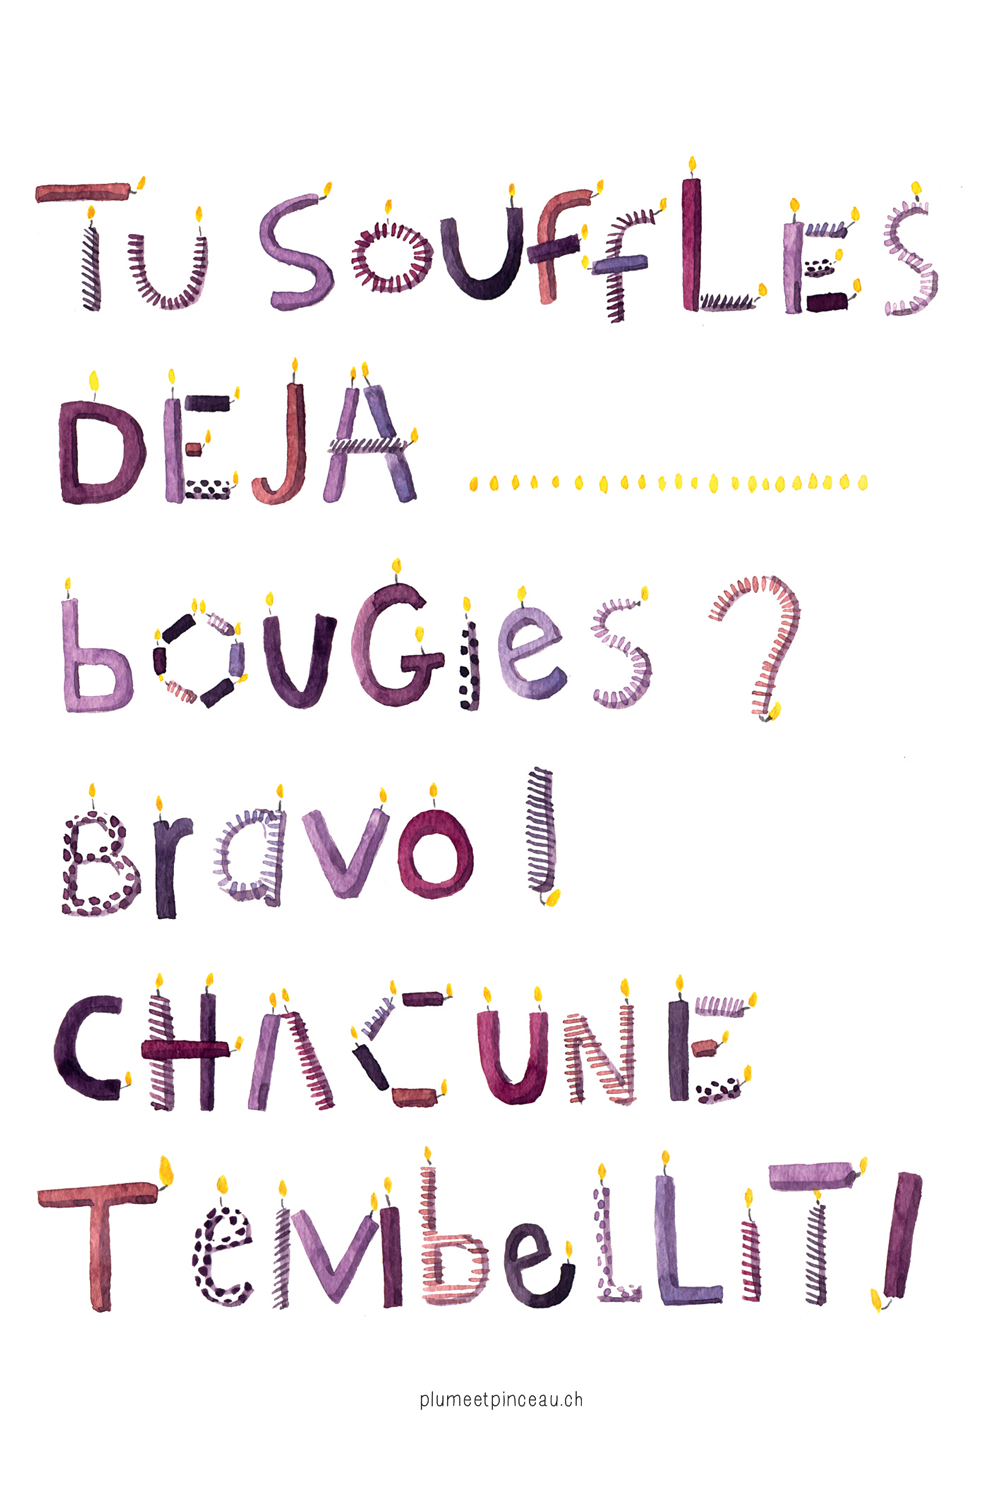 TU SOUffLES
DEJA ....................
bOUGIes ?
Bravo !
CHACUNE
TeMbeLLiT !
plumeetpinceau.ch